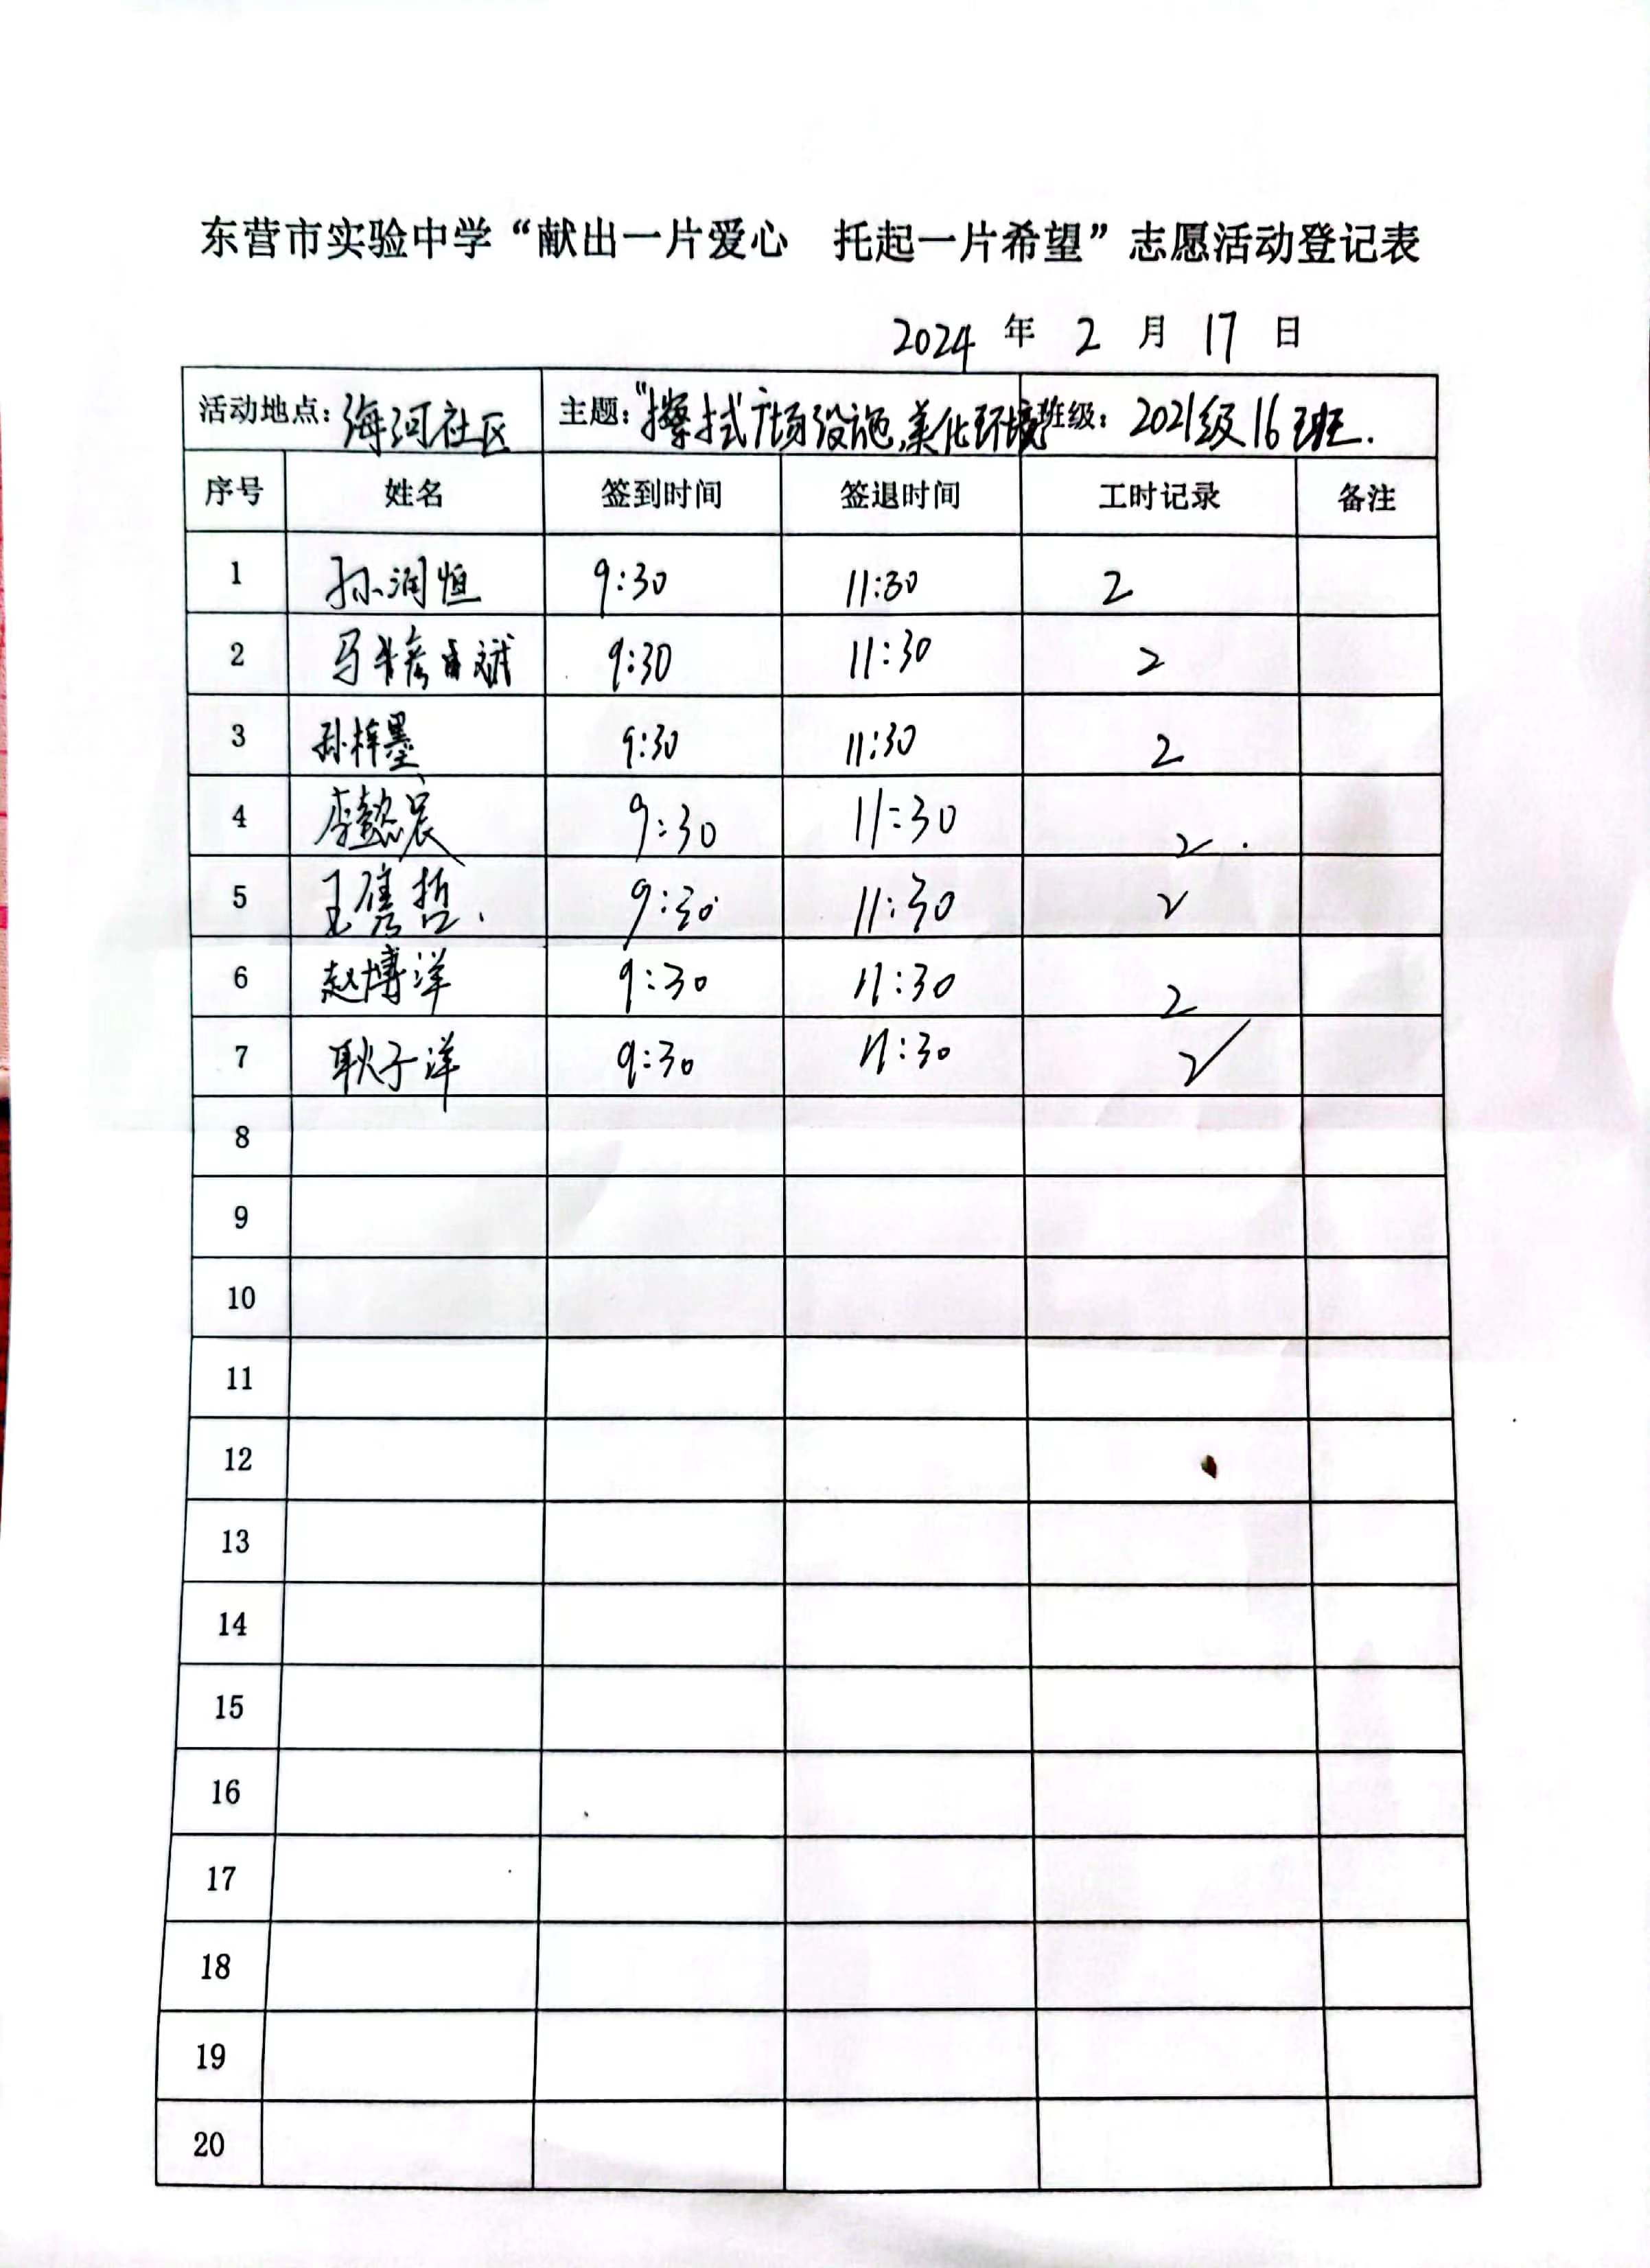 东营市实验中学“献出一片爱心 托起一片希望”志愿活动登记表
2024 年 2 月 17 日
活动地点：海河社区 主题：“擦拭广场设施,美化环境 班级：2021级16班.
序号 姓名 签到时间 签退时间 工时记录 备注
1 孙润恒 9:30 11:30 2
2 马 9:30 11:30 2
3 孙梓墨 9:30 11:30 2
4 李懿宸 9:30 11:30 2.
5 王隽哲. 9:30 11:30 2
6 赵博洋 9:30 11:30 2
7 耿子洋 9:30 11:30 2
8
9
10
11
12
13
14
15
16
17
18
19
20